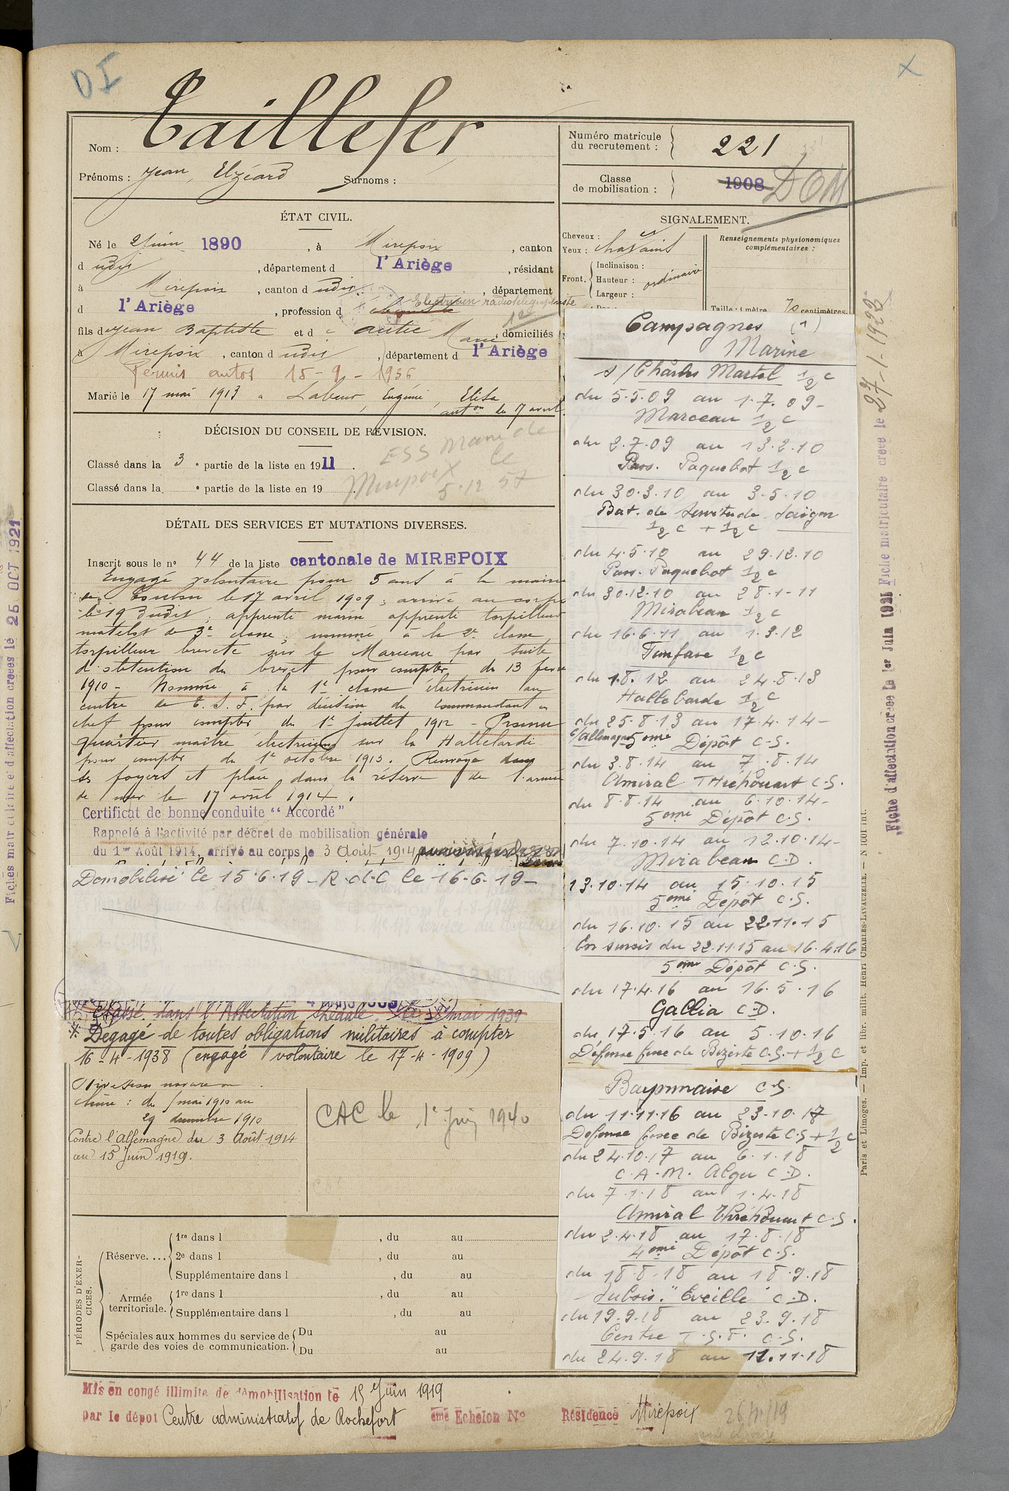 DI
X
Nom : Taillefer
Prénoms : Jean, Elzéard Surnoms :
Numéro matricule du recrutement : 221
Classe de mobilisation : 1908 DOM
ÉTAT CIVIL.
Né le 2 juin 1890, à Mirepoix, canton
d udit, département d l'Ariège, résidant
à Mirepoix, canton d udit, département
d l'Ariège, profession d Electricien radiotélégraphiste
fils de Jean Baptiste et d e Autié Marie, domiciliés
à Mirepoix, canton d udit, département d l'Ariège
Permis autos 15-9-1936
Marié le 17 mai 1913 à Labeur, Eugénie, Elisa
auton le 9 avril
DÉCISION DU CONSEIL DE RÉVISION.
Classé dans la 3e partie de la liste en 1911.
Classé dans la e partie de la liste en 19
ESS Mairie de
Mirepoix le
5.12.57
SIGNALEMENT.
Cheveux :
Yeux : chatains
Front, Inclinaison :
Hauteur : ordinaire
Largeur :
Renseignements physionomiques
complémentaires :
Taille : 1 mètre 70 centimètres
DÉTAIL DES SERVICES ET MUTATIONS DIVERSES.
Inscrit sous le n° 44 de la liste cantonale de MIREPOIX
Engagé volontaire pour 5 ans à la mairie
de Toulon le 17 avril 1909, arrivé au corps
le 19 dudit, apprenti marin, apprenti torpilleur
matelot de 3e classe, nommé à la 2e classe
torpilleur breveté sur le Marceau par suite
d'obtention du brevet pour compter du 13 fev
1910 - Nommé à la 1e classe électricien au
centre de T.S.F. par décision du commandant en
chef pour compter du 1er juillet 1912 - Promu
quartier maître électricien sur la Hallebarde
pour compter du 1er octobre 1913. Renvoyé dans
ses foyers et placé dans la réserve de l'armée
de mer le 17 avril 1914.
Certificat de bonne conduite "Accordé"
Rappelé à l'activité par décret de mobilisation générale
du 1er Août 1914, arrivé au corps le 3 Août 1914
Démobilisé le 15-6-19 - R.d.C le 16-6-19 -
Classé dans l'Affectation Spéciale mai 1939
Dégagé de toutes obligations militaires à compter
16-4-1938 (engagé volontaire le 17-4-1909)
Chine : du mai 1910 au
29 décembre 1910
Contre l'Allemagne du 3 Août 1914
au 15 Juin 1919.
CAC le 1er Juin 1940
PÉRIODES D'EXERCICES.
Réserve.... 1re dans l , du au
2e dans l , du au
Supplémentaire dans l , du au
Armée territoriale. 1re dans l , du au
Supplémentaire dans l , du au
Spéciales aux hommes du service de garde des voies de communication. Du au
Du au
Campagnes (1)
Marine
s/Charles Martel 1/2 c
du 5.5.09 au 1.7.09-
Marceau 1/2 c
du 2.7.09 au 13.2.10
Pass. Paquebot 1/2 c
du 30.3.10 au 3.5.10
Bat. de Servitude Saigon
1/2 c + 1/2 c
du 4.5.10 au 29.12.10
Pass. Paquebot 1/2 c
du 30.12.10 au 28.1.11
Mirabeau 1/2 c
du 16.6.11 au 1.3.12
Fanfare 1/2 c
du 1.8.12 au 24.8.13
Hallebarde 1/2 c
du 25.8.13 au 17.4.14-
C/Allemagne 5ème Dépôt C.S.
du 3.8.14 au 7.8.14
Amiral Tréhouart C.S.
du 8.8.14 au 6.10.14-
5ème Dépôt C.S.
du 7.10.14 au 12.10.14-
Mirabeau C.D.
13.10.14 au 15.10.15
5ème Dépôt C.S.
du 16.10.15 au 22.11.15
En sursis du 22.11.15 au 16.4.16
5ème Dépôt C.S.
du 17.4.16 au 16.5.16
Gallia C.D.
du 17.5.16 au 5.10.16
Défense fixe de Bizerte C.S. + 1/2 C
Bayonnaise C.S.
du 11.11.16 au 23.10.17
Défense fixe de Bizerte C.S + 1/2 C
du 24.10.17 au 6.1.18
C.A.M. Alger C.D.
du 7.1.18 au 1.4.18
Amiral Tréhouart C.S.
du 2.4.18 au 17.8.18
4ème Dépôt C.S.
du 18.8.18 au 18.9.18
"Eveillé" C.D.
du 19.9.18 au 23.9.18
Centre T.S.F. C.S.
du 24.9.18 au 11.11.18
Mis en congé illimité de démobilisation le 15 Juin 1919
par le dépôt Centre administratif de Rochefort ème Echelon N° Résidence Mirepoix
Fiches matriculaire et d'affectation créées le 25 OCT 1921
Fiche matriculaire créée le 27-1-1922
Fiche d'affectation créée le 1er Juin 1921
Paris et Limoges. — Imp. et libr. milit. Henri CHARLES-LAVAUZELLE.